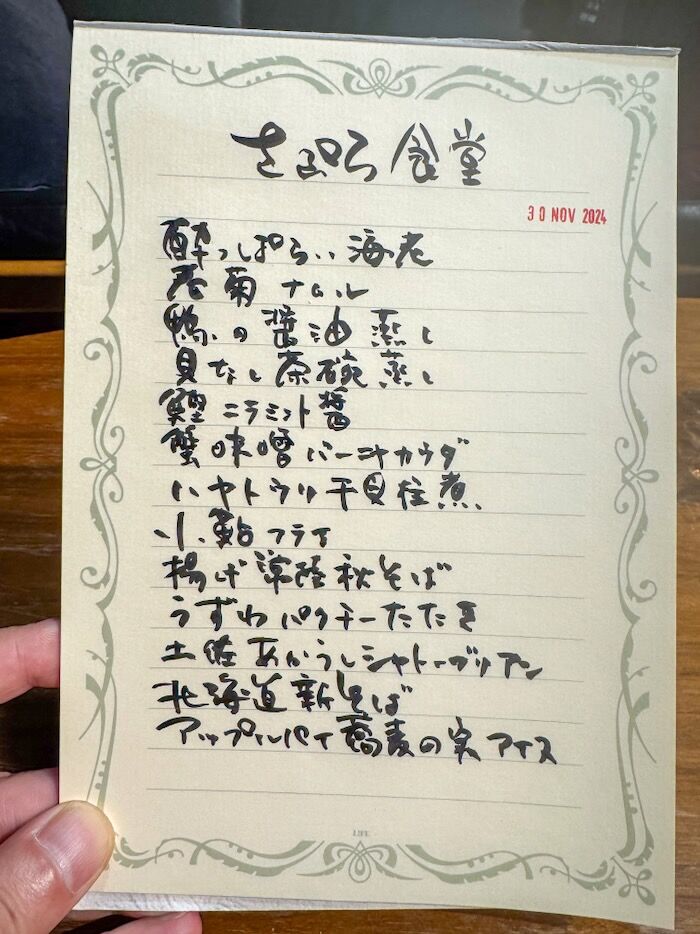 さぷろ 食堂
30 NOV 2024
酔っぱらい海老
春菊ナムル
鴨の醤油蒸し
具なし茶碗蒸し
鰹ニラミント醤
蟹味噌バーニャカウダ
ハヤトウリ干貝柱煮
小鮎フライ
揚げ常陸秋そば
うずわパクチーたたき
土佐あかうしシャトーブリアン
北海道新そば
アップルパイ蕎麦の実アイス
LIFE